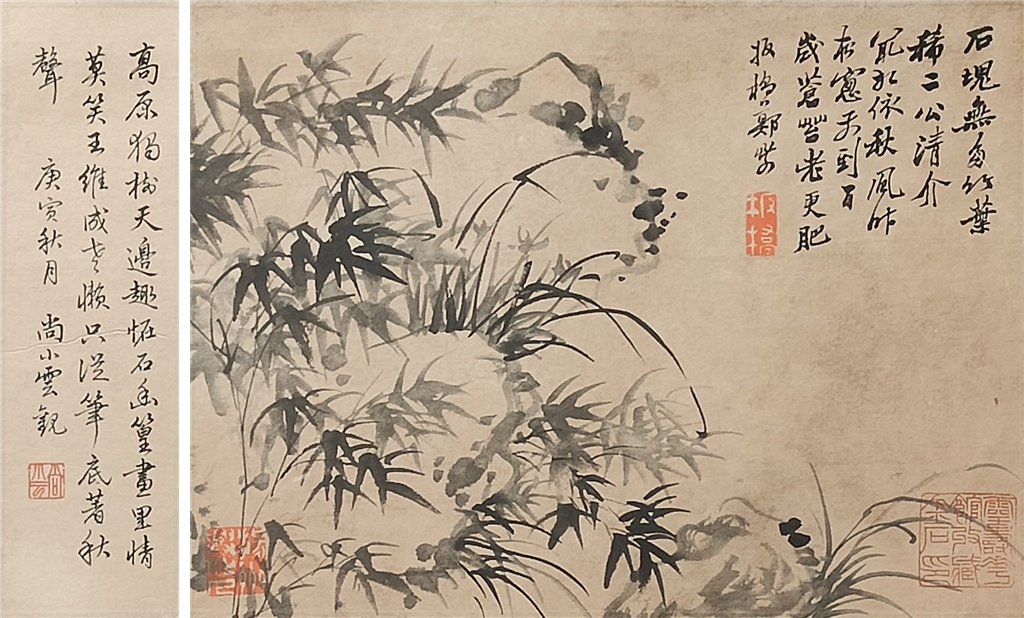 石塊無多竹葉
稀二公清介
最相依秋風昨
夜窓前到百
歲蒼蒼老更肥
板橋鄭燮
板橋
高原獨樹天邊趣怪石幽篁畫里情
莫笑王維成老懶只從筆底著秋
聲 庚寅秋月 尚小雲觀